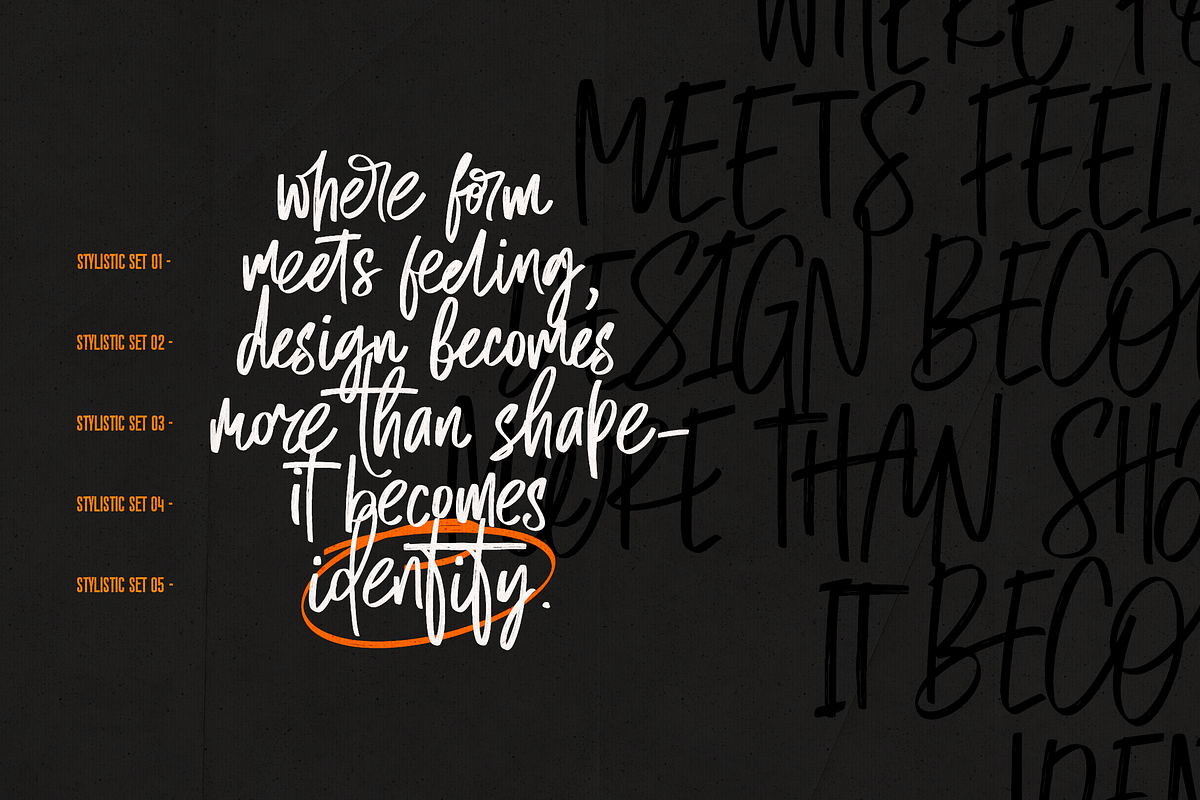 where form
meets feeling,
design becomes
more than shape–
it becomes
identity.
STYLISTIC SET 01 -
STYLISTIC SET 02 -
STYLISTIC SET 03 -
STYLISTIC SET 04 -
STYLISTIC SET 05 -
WHERE FO
MEETS FEEL
DESIGN BECO
MORE THAN SHA
IT BECO
IDEN